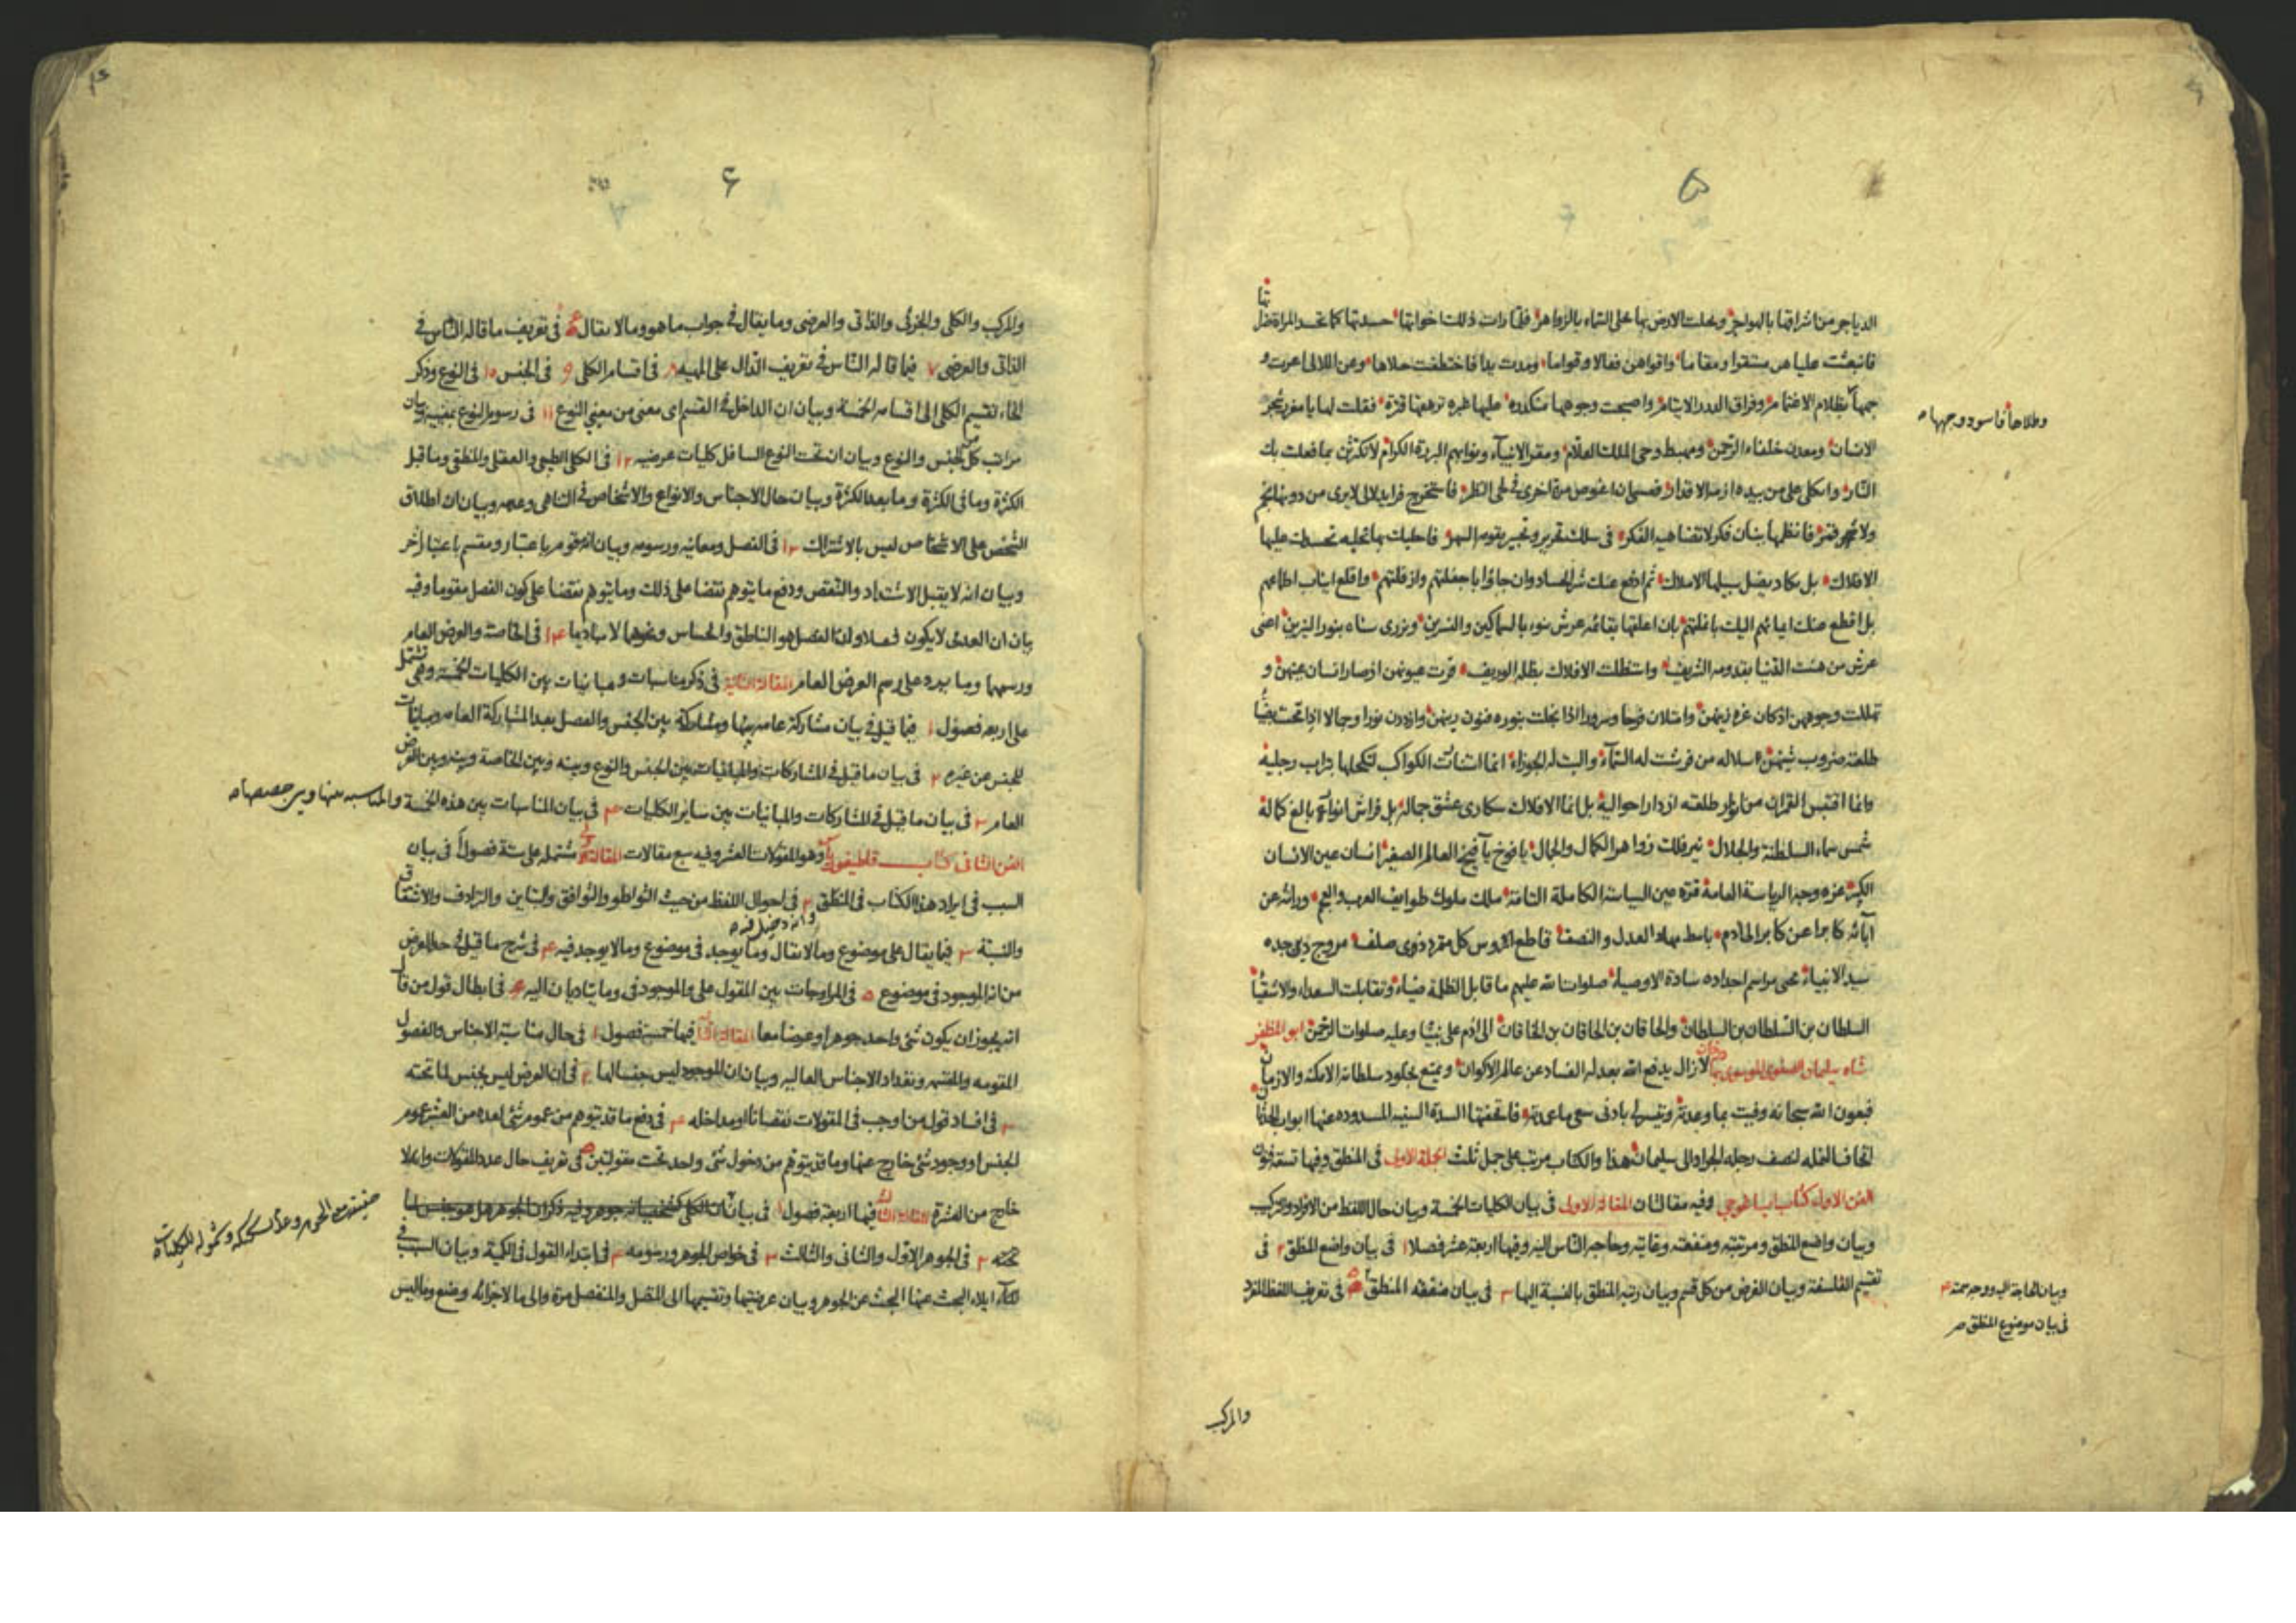 ۵
الدياجر من اشراقها بالهواجر وعلت الارض بها على السماء بالزواهر فلما رات ذلك اخواتها حسدتها كما تحسد المراة ضراتها
فانبعثت عليا هن مستقرا ومقاما واقواهن فعالا وقواما ومدت يدا فاختطفت حلاها وعن اللالى اعرت و
جمها بظلام الاغتمام وفراق الدرر الايتام واصبحت وجوهها منكدرة عليها غبرة ترهقها قترة فقلت لها يا مغرب شجر
وطلاها فاسود وجهها
الانسان ومعدن خلفاء الرحمن ومهبط وحى الملك العلام ومقر الانبياء ونوابهم البررة الكرام لا تكترثى بما فعلت بك
النار واتكلى على من بيده ازمة الاقدار فعسى ان اغوص مرة اخرى فى لجى النظر فاستخرج فرايد لالى لا يرى من دونها نجم
ولا قمر فانظمها ببنان فكر لا تضاهيه الفكر فى سلك تقرير وتحبير يقومه السهر فاحليك بها تحلية تحسدك عليها
الافلاك بل يكاد يضل سبيلها الاملاك ثم ادفع عنك شر الحساد وان جاؤا باجفلتهم وازفلتهم واقلع انياب اطماعهم
بل اقطع عنك ايمانهم اليك باغلتهم بان اعلقها بقائمة عرش ينوء بالسماكين والنسرين ويزرى سناه بنور النيرين اعنى
عرش من هشت الدنيا بقدومه الشريف واستظلت الافلاك بظله الوريف قرت عيونهن اذ صار انسان عينهن و
تهللت وجوههن اذ كان غرة زينهن وامتلان فرحا وسرورا اذ انجلت بنوره فنون رينهن وازددن نورا وجمالا اذ اتحت بضياء
طلعته ضروب شينهن سلالة من فرشت له السماء والبت له الجوزاء انما انشات الكواكب لتكحلها بتراب رجليه
وانما اقتبس القمران من انوار طلعته اذ دارا حواليه بل انما الافلاك سكارى عشق جماله بل فراش انواره بالغ كماله
شمس سماء السلطنة والجلال نير فلك زواهر الكمال والجمال يافوخ يافيخ العالم الصغير انسان عين الانسان
الكبير غرة وجه الرياسة العامة قرة عين السياسة الكاملة التامة ملك ملوك طوايف العرب والعجم وراثة عن
آبائه كابرا عن كابر الى ادم باسط مهاد العدل والنصف قاطع رؤس كل متمرد ذوى صلف مروج دين جده
سيد الانبياء محيى مراسم اجداده سادة الاوصياء صلوات الله عليهم ما قابل الظلمة ضياء وتقابلت السعداء والاشقياء
السلطان بن السلطان بن السلطان والخاقان بن الخاقان بن الخاقان الى ادم على نبينا وعليه صلوات الرحمن ابو المظفر
شاه سليمان الصفوى الموسوى بهادر خان لا زال يدفع الله بعدله الفساد عن عالم الاكوان ويمتع بخلود سلطانه الامكنة والازمان
فبعون الله سبحانه وفيت بما وعدته وتيسر لى بادنى سعى ما عددته فاتحفتها السدة السنية المسدودة عنها ابواب الحدثان
اتحاف النملة لنصف رجل الجراد الى سليمان هذا والكتاب مرتب على جمل ثلث الجملة الاولى فى المنطق وفيها تسعة فنون
الفن الاول كتاب ايساغوجى وفيه مقالتان المقالة الاولى فى بيان الكليات الخمسة وبيان حال اللفظ من الافراد والتركيب
وبيان واضع المنطق ومرتبته ومنفعته وغايته وحاجة الناس اليه وفيها اربعة عشر فصلا ۱ فى بيان واضع المنطق ۲ فى
تقسيم الفلسفة وبيان الغرض من كل قسم وبيان رتبة المنطق بالنسبة اليها ۳ فى بيان منفعة المنطق ۵ فى تعريف اللفظ المفرد
وبيان الحاجة اليه ووجه سمته ۴
فى بيان موضوع المنطق صح
والمركب
۶
والمركب والكلى والجزئى والذاتى والعرضى وما يقال فى جواب ما هو وما لا يقال ۶ فى تعريف ما قاله الناس فى
الذاتى والعرضى ۷ فيما قاله الناس فى تعريف الدال على المهية ۸ فى اقسام الكلى ۹ فى الجنس ۱۰ فى النوع وذكر
انحاء تقسيم الكلى الى اقسامه الخمسة وبيان ان الداخل فى القسم اى معنى من معنيى النوع ۱۱ فى رسوم النوع بمعنييه وبيان
مراتب كل من الجنس والنوع وبيان ان تحت النوع السافل كليات عرضية ۱۲ فى الكلى الطبيعى والعقلى والمنطقى وما قبل
الكثرة وما فى الكثرة وما بعد الكثرة وبيان حال الاجناس والانواع والاشخاص فى التناهى وعدمه وبيان ان اطلاق
الشخص على الاشخاص ليس بالاشتراك ۱۳ فى الفصل ومعانيه ورسومه وبيان انه مقوم باعتبار ومقسم باعتبار آخر
وبيان انه لا يقبل الاشتداد والتنقص ودفع ما يتوهم نقضا على ذلك وما يتوهم نقضا على كون الفصل مقوما وفيه
بيان ان العدمى لا يكون فصلا وان الفصل هو الناطق والحساس ونحوهما لا مباديها ۱۴ فى الخاصة والعرض العام
ورسمهما وما يرد على رسم العرض العام المقالة الثانية فى ذكر مناسبات ومباينات بين الكليات الخمسة وهى تشتمل
على اربعة فصول ۱ فيما قيل فى بيان مشاركة عامة بينها ومشاركة بين الجنس والفصل بعد المشاركة العامة ومباينات
للجنس عن غيره ۲ فى بيان ما قيل فى المشاركات والمباينات بين الجنس والنوع وبينه وبين الخاصة وبينه وبين العرض
العام ۳ فى بيان ما قيل فى المشاركات والمباينات بين ساير الكليات ۴ فى بيان المناسبات بين هذه الخمسة والمناسبة بينها وبين حصصها
الفن الثانى كتاب قاطيغورياس وهو المقولات العشر وفيه سبع مقالات المقالة الاولى مشتملة على ستة فصول ۱ فى بيان
السبب فى ايراد هذا الكتاب فى المنطق ۲ فى احوال اللفظ من حيث التواطؤ والتوافق والتباين والترادف والاشتقاق
وانه دخيل فيه
والنسبة ۳ فيما يقال على موضوع وما لا يقال وما يوجد فى موضوع وما لا يوجد فيه ۴ فى شرح ما قيل فى حد العرض
من انه الموجود فى موضوع ۵ فى المزاوجات بين المقول على والموجود فى وما يتاديان اليه ۶ فى ابطال قول من قال
انه يجوز ان يكون شئ واحد جوهرا وعرضا معا المقالة الثانية فيها خمسة فصول ۱ فى حال مناسبة الاجناس والفصول
المقومة والمقسمة وتعداد الاجناس العالية وبيان ان الموجود ليس جنسا لها ۲ فى ان العرض ليس بجنس لما تحته
۳ فى افساد قول من اوجب فى المقولات نقصانا او مداخلة ۴ فى دفع ما قد يتوهم من عموم شئ لعدة من العشر عموم
الجنس او وجود شئ خارج عنها وما قد يتوهم من دخول شئ واحد تحت مقولتين ۵ فى تعريف حال عدد المقولات وان لا
خارج من العشرة المقالة الثالثة فيها اربعة فصول ۱ فى بيان
تحته ۲ فى الجوهر الاول والثانى والثالث ۳ فى خواص الجوهر ورسومه ۴ فى ابتداء القول فى الكمية وبيان السبب فى
ايلاء البحث عنها البحث عن الجوهر وبيان عرضيتها وتقسيمها الى المتصل والمنفصل مرة والى ما لاجزائه وضع وما ليس